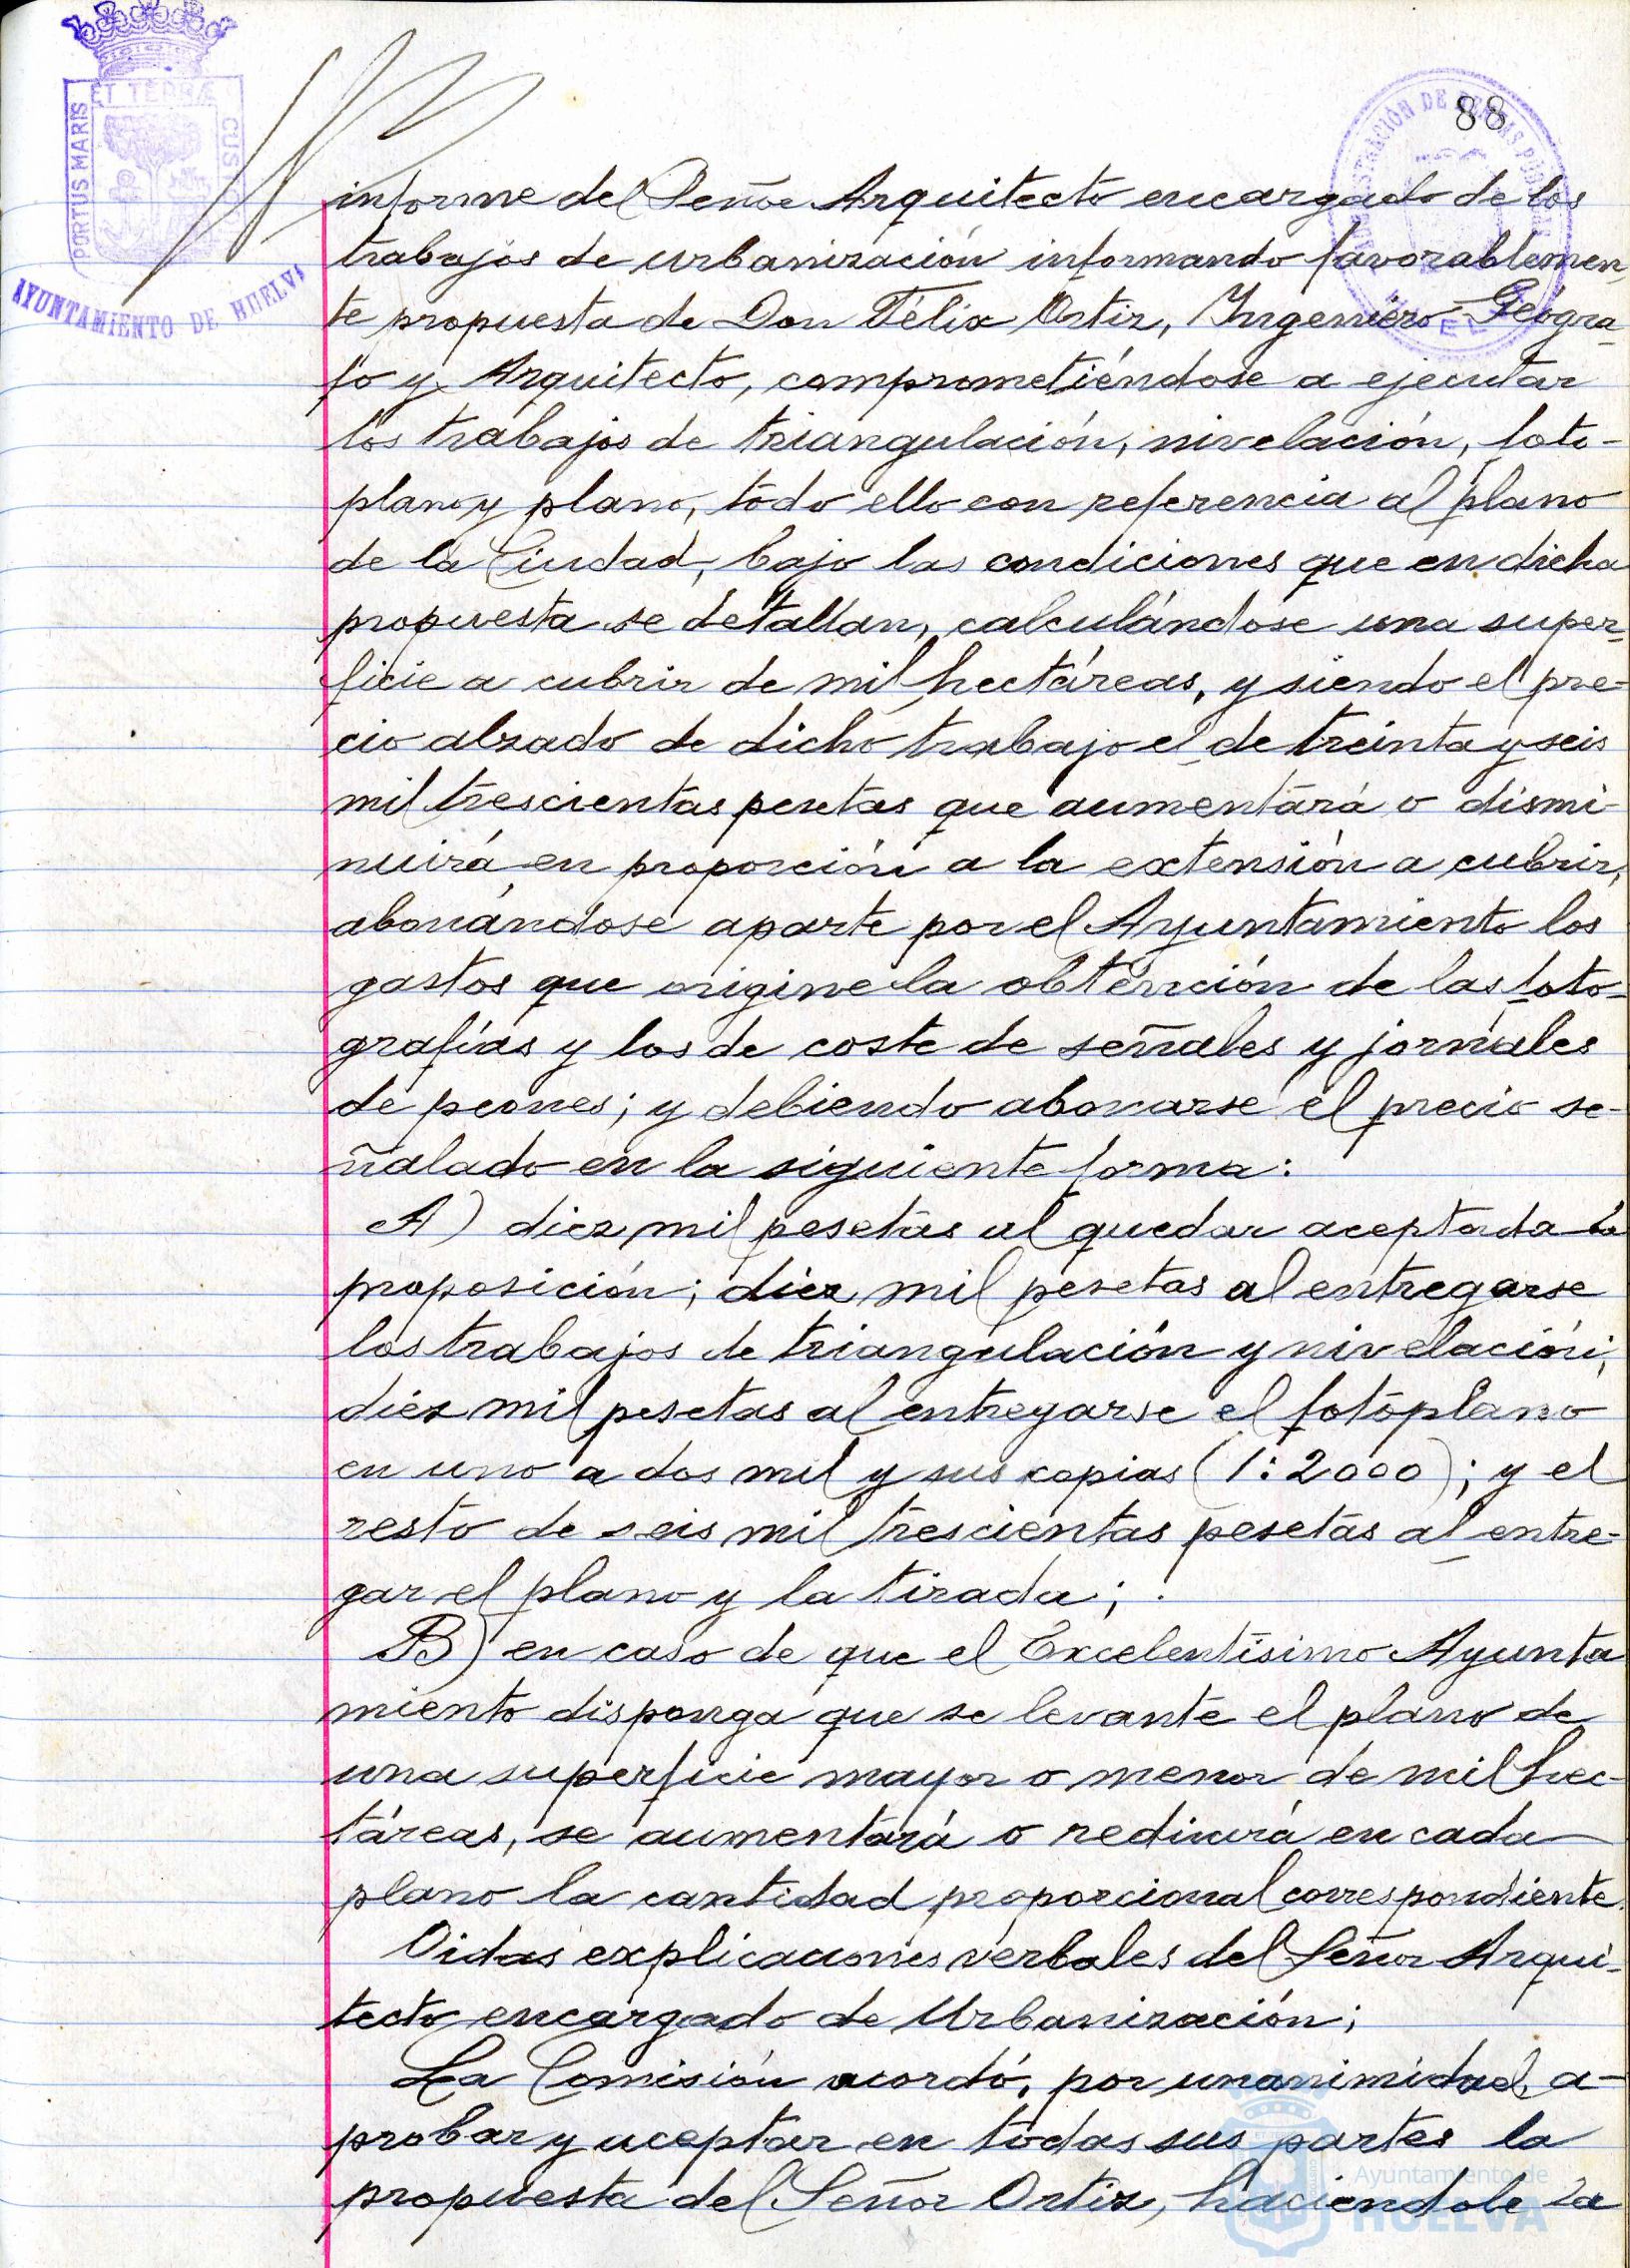 88
PORTUS MARIS
ET TERRÆ
CUSTO
AYUNTAMIENTO DE HUELVA
informe del Señor Arquitecto encargado de los
trabajos de urbanización informando favorablemen-
te propuesta de Don Félix Ortiz, Ingeniero-Geógra-
fo y Arquitecto, comprometiéndose a ejecutar
los trabajos de triangulación, nivelación, foto-
plano y plano, todo ello con referencia al plano
de la Ciudad, bajo las condiciones que en dicha
propuesta se detallan, calculándose una super-
ficie a cubrir de mil hectáreas, y siendo el pre-
cio alzado de dicho trabajo el de treinta y seis
mil trescientas pesetas que aumentará o dismi-
nuirá en proporción a la extensión a cubrir,
abonándose aparte por el Ayuntamiento los
gastos que origine la obtención de las foto-
grafías y los de coste de señales y jornales
de peones; y debiendo abonarse el precio se-
ñalado en la siguiente forma:
A) diez mil pesetas al quedar aceptada la
proposición; diez mil pesetas al entregarse
los trabajos de triangulación y nivelación;
diez mil pesetas al entregarse el fotoplano
en uno a dos mil y sus copias (1:2000); y el
resto de seis mil trescientas pesetas al entre-
gar el plano y la tirada;
B) en caso de que el Excelentísimo Ayunta
miento disponga que se levante el plano de
una superficie mayor o menor de mil hec-
táreas, se aumentará o reducirá en cada
plano la cantidad proporcional correspondiente.
Oidas explicaciones verbales del Señor Arqui-
tecto encargado de Urbanización;
La Comisión acordó, por unanimidad, a-
probar y aceptar en todas sus partes la
propuesta del Señor Ortiz, haciendole la
Ayuntamiento de
HUELVA